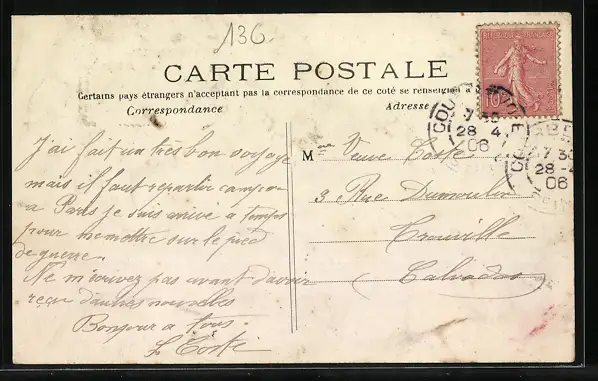 136
CARTE POSTALE
Certains pays étrangers n'acceptent pas la correspondance de ce coté se renseign à
Correspondance
Adresse
REPUBLIQUE FRANÇAISE
10
7 30
28 4
06
7 30
28
06
J'ai fait un très bon voyage
mais il faut repartir
a Paris je suis arrivé a temps
pour me mettre sur le pied
de guerre.
Ne m'écrivez pas avant d'avoir
reçu d'autres nouvelles
Bonjour a tous.
L Costé
Mme Veuve Costé
3 Rue Dumoulin
Trouville
(Calvados)